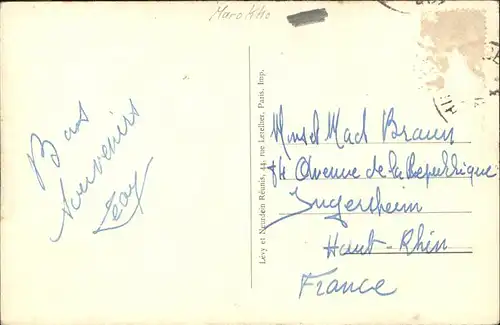 Marokko
Bons
souvenirs
Lévy et Neurdein Réunis, 44, rue Letellier, Paris. Imp.
Braun
Avenue de la République
Ingersheim
Haut-Rhin
France